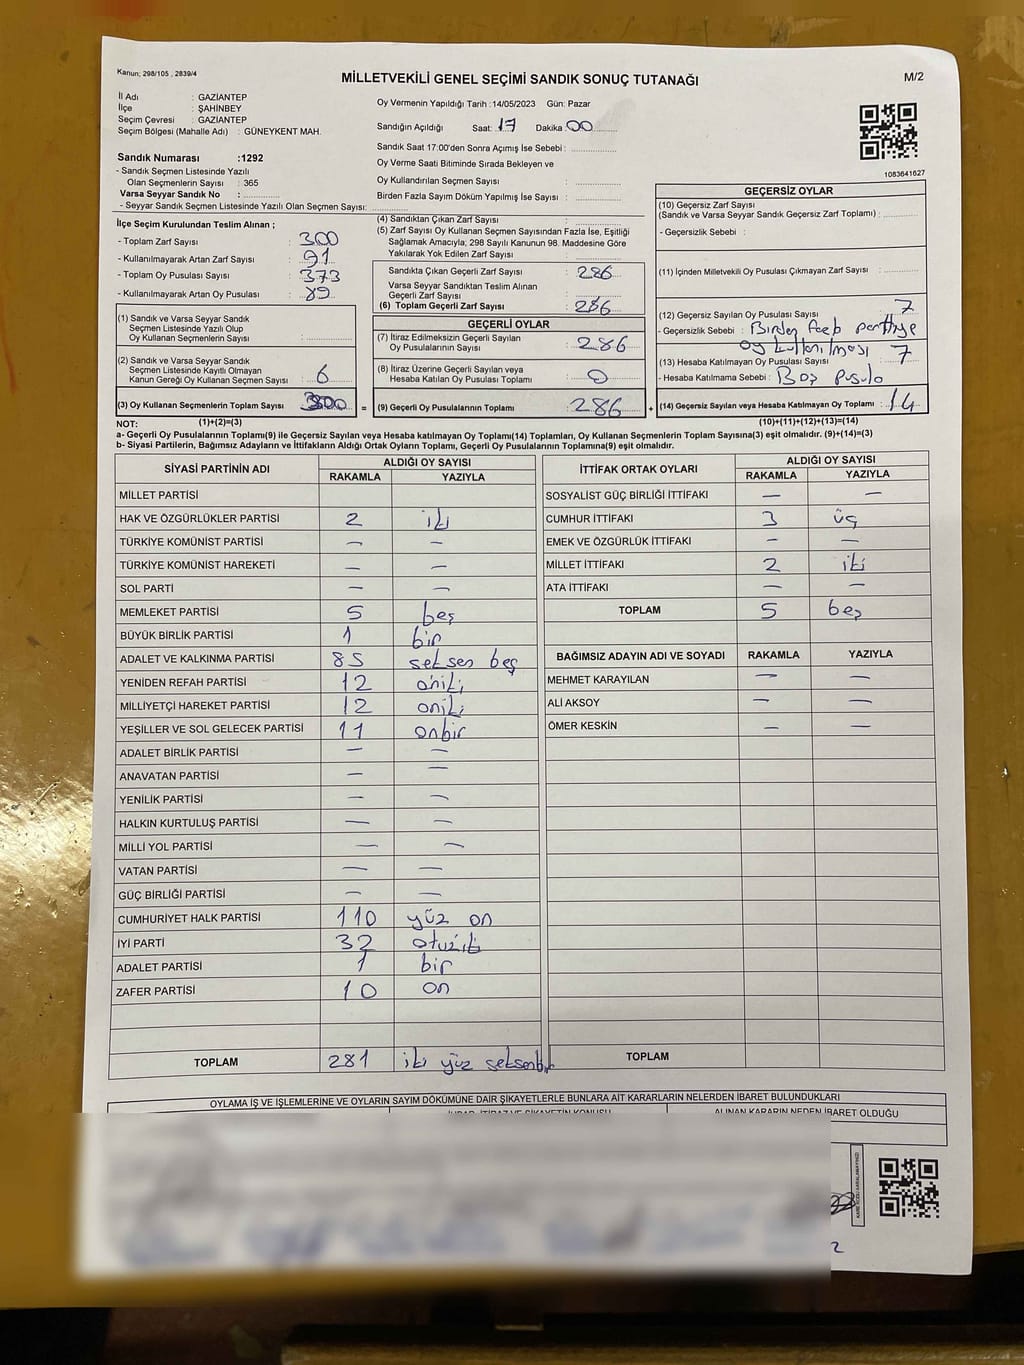 Kanun; 298/105 , 2839/4
MİLLETVEKİLİ GENEL SEÇİMİ SANDIK SONUÇ TUTANAĞI
M/2
İl Adı : GAZİANTEP
İlçe : ŞAHİNBEY
Seçim Çevresi : GAZİANTEP
Seçim Bölgesi (Mahalle Adı) : GÜNEYKENT MAH.
Sandık Numarası :1292
- Sandık Seçmen Listesinde Yazılı
Olan Seçmenlerin Sayısı : 365
Varsa Seyyar Sandık No :
- Seyyar Sandık Seçmen Listesinde Yazılı Olan Seçmen Sayısı:
Oy Vermenin Yapıldığı Tarih :14/05/2023 Gün: Pazar
Sandığın Açıldığı Saat: 17 Dakika 00
Sandık Saat 17:00'den Sonra Açımış İse Sebebi :
Oy Verme Saati Bitiminde Sırada Bekleyen ve
Oy Kullandırılan Seçmen Sayısı :
Birden Fazla Sayım Döküm Yapılmış İse Sayısı :
1083641627
İlçe Seçim Kurulundan Teslim Alınan ;
- Toplam Zarf Sayısı : 300
- Kullanılmayarak Artan Zarf Sayısı : 91
- Toplam Oy Pusulası Sayısı : 373
- Kullanılmayarak Artan Oy Pusulası : 89
(1) Sandık ve Varsa Seyyar Sandık
Seçmen Listesinde Yazılı Olup
Oy Kullanan Seçmenlerin Sayısı :
(2) Sandık ve Varsa Seyyar Sandık
Seçmen Listesinde Kayıtlı Olmayan
Kanun Gereği Oy Kullanan Seçmen Sayısı : 6
(3) Oy Kullanan Seçmenlerin Toplam Sayısı : 300 =
(4) Sandıktan Çıkan Zarf Sayısı :
(5) Zarf Sayısı Oy Kullanan Seçmen Sayısından Fazla İse, Eşitliği
Sağlamak Amacıyla; 298 Sayılı Kanunun 98. Maddesine Göre
Yakılarak Yok Edilen Zarf Sayısı :
Sandıkta Çıkan Geçerli Zarf Sayısı : 286
Varsa Seyyar Sandıktan Teslim Alınan
Geçerli Zarf Sayısı :
(6) Toplam Geçerli Zarf Sayısı : 286
GEÇERLİ OYLAR
(7) İtiraz Edilmeksizin Geçerli Sayılan
Oy Pusulalarının Sayısı : 286
(8) İtiraz Üzerine Geçerli Sayılan veya
Hesaba Katılan Oy Pusulası Toplamı : 0
(9) Geçerli Oy Pusulalarının Toplamı : 286 +
GEÇERSİZ OYLAR
(10) Geçersiz Zarf Sayısı
(Sandık ve Varsa Seyyar Sandık Geçersiz Zarf Toplamı) :
- Geçersizlik Sebebi :
(11) İçinden Milletvekili Oy Pusulası Çıkmayan Zarf Sayısı :
(12) Geçersiz Sayılan Oy Pusulası Sayısı : 7
- Geçersizlik Sebebi : Birden partiye
oy kullanılması
(13) Hesaba Katılmayan Oy Pusulası Sayısı : 7
- Hesaba Katılmama Sebebi : Boş Pusula
(14) Geçersiz Sayılan veya Hesaba Katılmayan Oy Toplamı : 14
NOT: (1)+(2)=(3) (10)+(11)+(12)+(13)=(14)
a- Geçerli Oy Pusulalarının Toplamı(9) ile Geçersiz Sayılan veya Hesaba katılmayan Oy Toplamı(14) Toplamları, Oy Kullanan Seçmenlerin Toplam Sayısına(3) eşit olmalıdır. (9)+(14)=(3)
b- Siyasi Partilerin, Bağımsız Adayların ve İttifakların Aldığı Ortak Oyların Toplamı, Geçerli Oy Pusulalarının Toplamına(9) eşit olmalıdır.
SİYASİ PARTİNİN ADI ALDIĞI OY SAYISI
RAKAMLA YAZIYLA
MİLLET PARTİSİ
HAK VE ÖZGÜRLÜKLER PARTİSİ 2 iki
TÜRKİYE KOMÜNİST PARTİSİ – –
TÜRKİYE KOMÜNİST HAREKETİ – –
SOL PARTİ – –
MEMLEKET PARTİSİ 5 beş
BÜYÜK BİRLİK PARTİSİ 1 bir
ADALET VE KALKINMA PARTİSİ 85 seksen beş
YENİDEN REFAH PARTİSİ 12 oniki
MİLLİYETÇİ HAREKET PARTİSİ 12 oniki
YEŞİLLER VE SOL GELECEK PARTİSİ 11 onbir
ADALET BİRLİK PARTİSİ – –
ANAVATAN PARTİSİ – –
YENİLİK PARTİSİ – –
HALKIN KURTULUŞ PARTİSİ – –
MİLLİ YOL PARTİSİ – –
VATAN PARTİSİ – –
GÜÇ BİRLİĞİ PARTİSİ – –
CUMHURİYET HALK PARTİSİ 110 yüz on
İYİ PARTİ 32 otuziki
ADALET PARTİSİ 1 bir
ZAFER PARTİSİ 10 on
TOPLAM 281 iki yüz seksenbir
İTTİFAK ORTAK OYLARI ALDIĞI OY SAYISI
RAKAMLA YAZIYLA
SOSYALİST GÜÇ BİRLİĞİ İTTİFAKI – –
CUMHUR İTTİFAKI 3 üç
EMEK VE ÖZGÜRLÜK İTTİFAKI – –
MİLLET İTTİFAKI 2 iki
ATA İTTİFAKI – –
TOPLAM 5 beş
BAĞIMSIZ ADAYIN ADI VE SOYADI RAKAMLA YAZIYLA
MEHMET KARAYILAN – –
ALİ AKSOY – –
ÖMER KESKİN – –
TOPLAM
OYLAMA İŞ VE İŞLEMLERİNE VE OYLARIN SAYIM DÖKÜMÜNE DAİR ŞİKAYETLERLE BUNLARA AİT KARARLARIN NELERDEN İBARET BULUNDUKLARI
ALINAN KARARIN NEDEN İBARET OLDUĞU
2